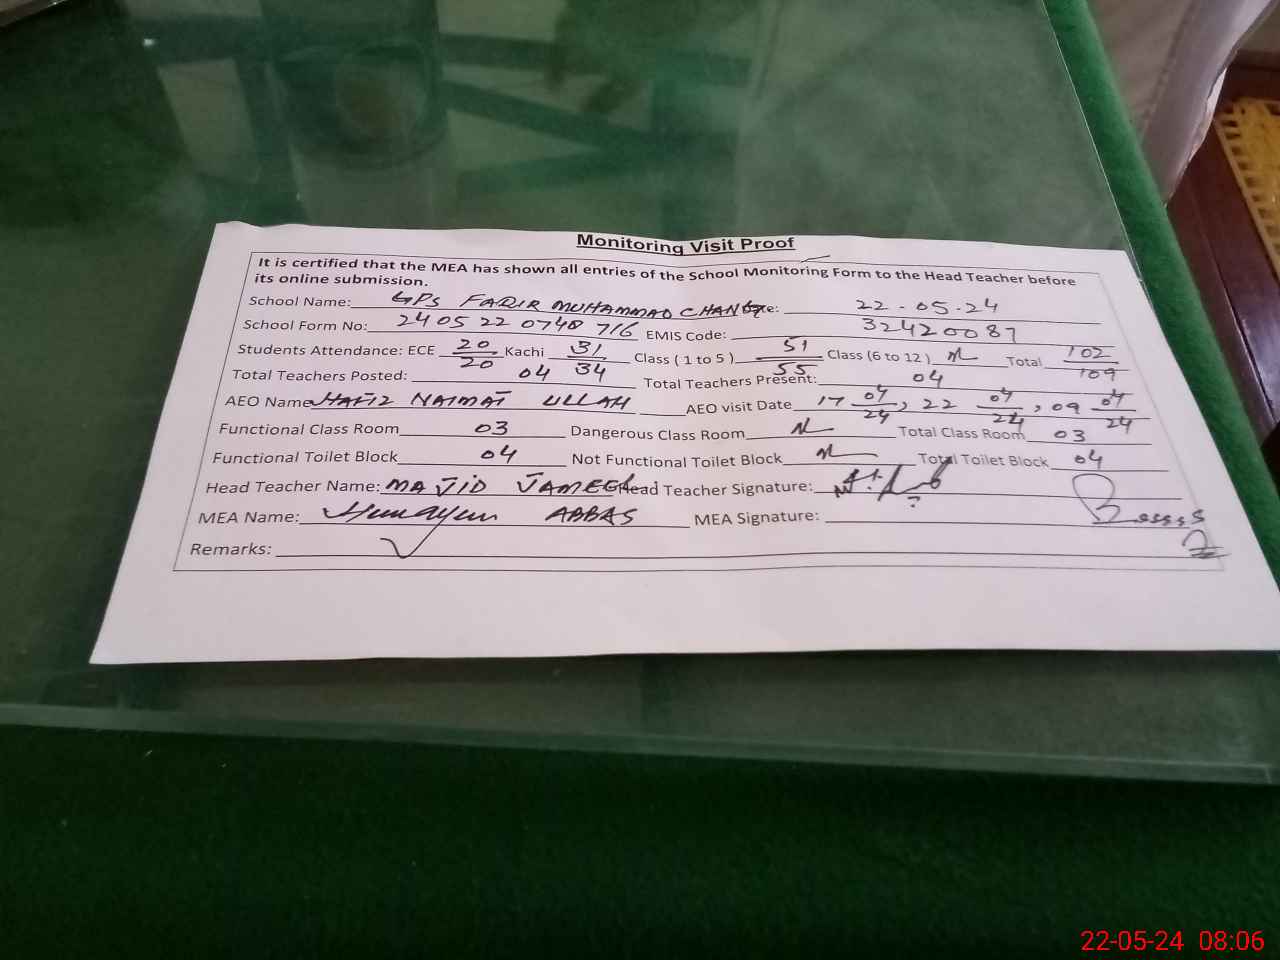 Monitoring Visit Proof
It is certified that the MEA has shown all entries of the School Monitoring Form to the Head Teacher before
its online submission.
School Name: GPS FAQIR MUHAMMAD CHAN 22-05-24
School Form No: 2405220748716 EMIS Code: 32420087
Students Attendance: ECE 20/20 Kachi 31/34 Class (1 to 5) 51/55 Class (6 to 12) Total 102/109
Total Teachers Posted: 04 Total Teachers Present: 04
AEO Name HAFIZ NAIMAT ULLAH AEO visit Date 17 04/24, 22 04/24, 09 04/24
Functional Class Room 03 Dangerous Class Room Total Class Room 03
Functional Toilet Block 04 Not Functional Toilet Block Total Toilet Block 04
Head Teacher Name: MAJID JAMEEL Head Teacher Signature:
MEA Name: Humayun ABBAS MEA Signature:
Remarks:
22-05-24 08:06